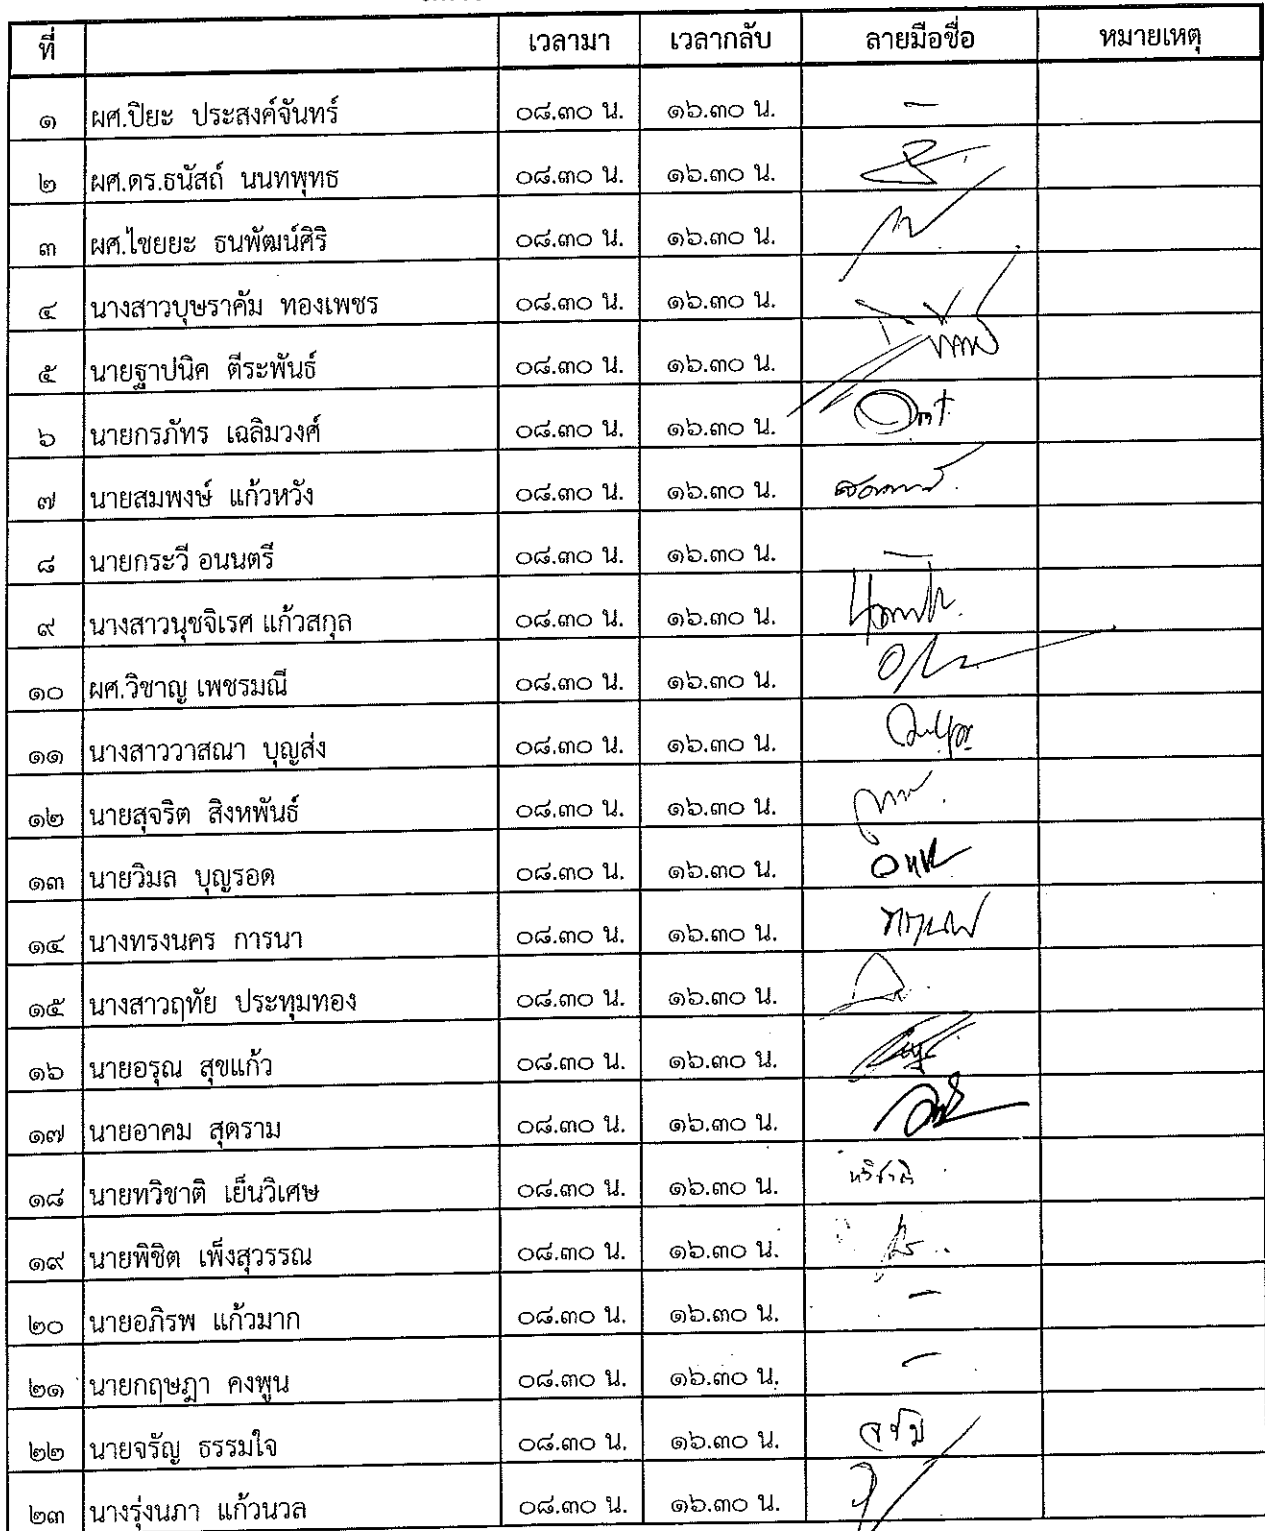 ที่ เวลามา เวลากลับ ลายมือชื่อ หมายเหตุ
๑ ผศ.ปิยะ ประสงค์จันทร์ ๐๘.๓๐ น. ๑๖.๓๐ น. -
๒ ผศ.ดร.ธนัสถ์ นนทพุทธ ๐๘.๓๐ น. ๑๖.๓๐ น.
๓ ผศ.ไชยยะ ธนพัฒน์ศิริ ๐๘.๓๐ น. ๑๖.๓๐ น.
๔ นางสาวบุษราคัม ทองเพชร ๐๘.๓๐ น. ๑๖.๓๐ น.
๕ นายฐาปนิค ตีระพันธ์ ๐๘.๓๐ น. ๑๖.๓๐ น.
๖ นายกรภัทร เฉลิมวงศ์ ๐๘.๓๐ น. ๑๖.๓๐ น.
๗ นายสมพงษ์ แก้วหวัง ๐๘.๓๐ น. ๑๖.๓๐ น.
๘ นายกระวี อนนตรี ๐๘.๓๐ น. ๑๖.๓๐ น. -
๙ นางสาวนุชจิเรศ แก้วสกุล ๐๘.๓๐ น. ๑๖.๓๐ น.
๑๐ ผศ.วิชาญ เพชรมณี ๐๘.๓๐ น. ๑๖.๓๐ น.
๑๑ นางสาววาสณา บุญส่ง ๐๘.๓๐ น. ๑๖.๓๐ น.
๑๒ นายสุจริต สิงหพันธ์ ๐๘.๓๐ น. ๑๖.๓๐ น.
๑๓ นายวิมล บุญรอด ๐๘.๓๐ น. ๑๖.๓๐ น.
๑๔ นางทรงนคร การนา ๐๘.๓๐ น. ๑๖.๓๐ น.
๑๕ นางสาวฤทัย ประทุมทอง ๐๘.๓๐ น. ๑๖.๓๐ น.
๑๖ นายอรุณ สุขแก้ว ๐๘.๓๐ น. ๑๖.๓๐ น.
๑๗ นายอาคม สุดราม ๐๘.๓๐ น. ๑๖.๓๐ น.
๑๘ นายทวิชาติ เย็นวิเศษ ๐๘.๓๐ น. ๑๖.๓๐ น. ทวิชาติ
๑๙ นายพิชิต เพ็งสุวรรณ ๐๘.๓๐ น. ๑๖.๓๐ น.
๒๐ นายอภิรพ แก้วมาก ๐๘.๓๐ น. ๑๖.๓๐ น. -
๒๑ นายกฤษฎา คงพูน ๐๘.๓๐ น. ๑๖.๓๐ น. -
๒๒ นายจรัญ ธรรมใจ ๐๘.๓๐ น. ๑๖.๓๐ น.
๒๓ นางรุ่งนภา แก้วนวล ๐๘.๓๐ น. ๑๖.๓๐ น.